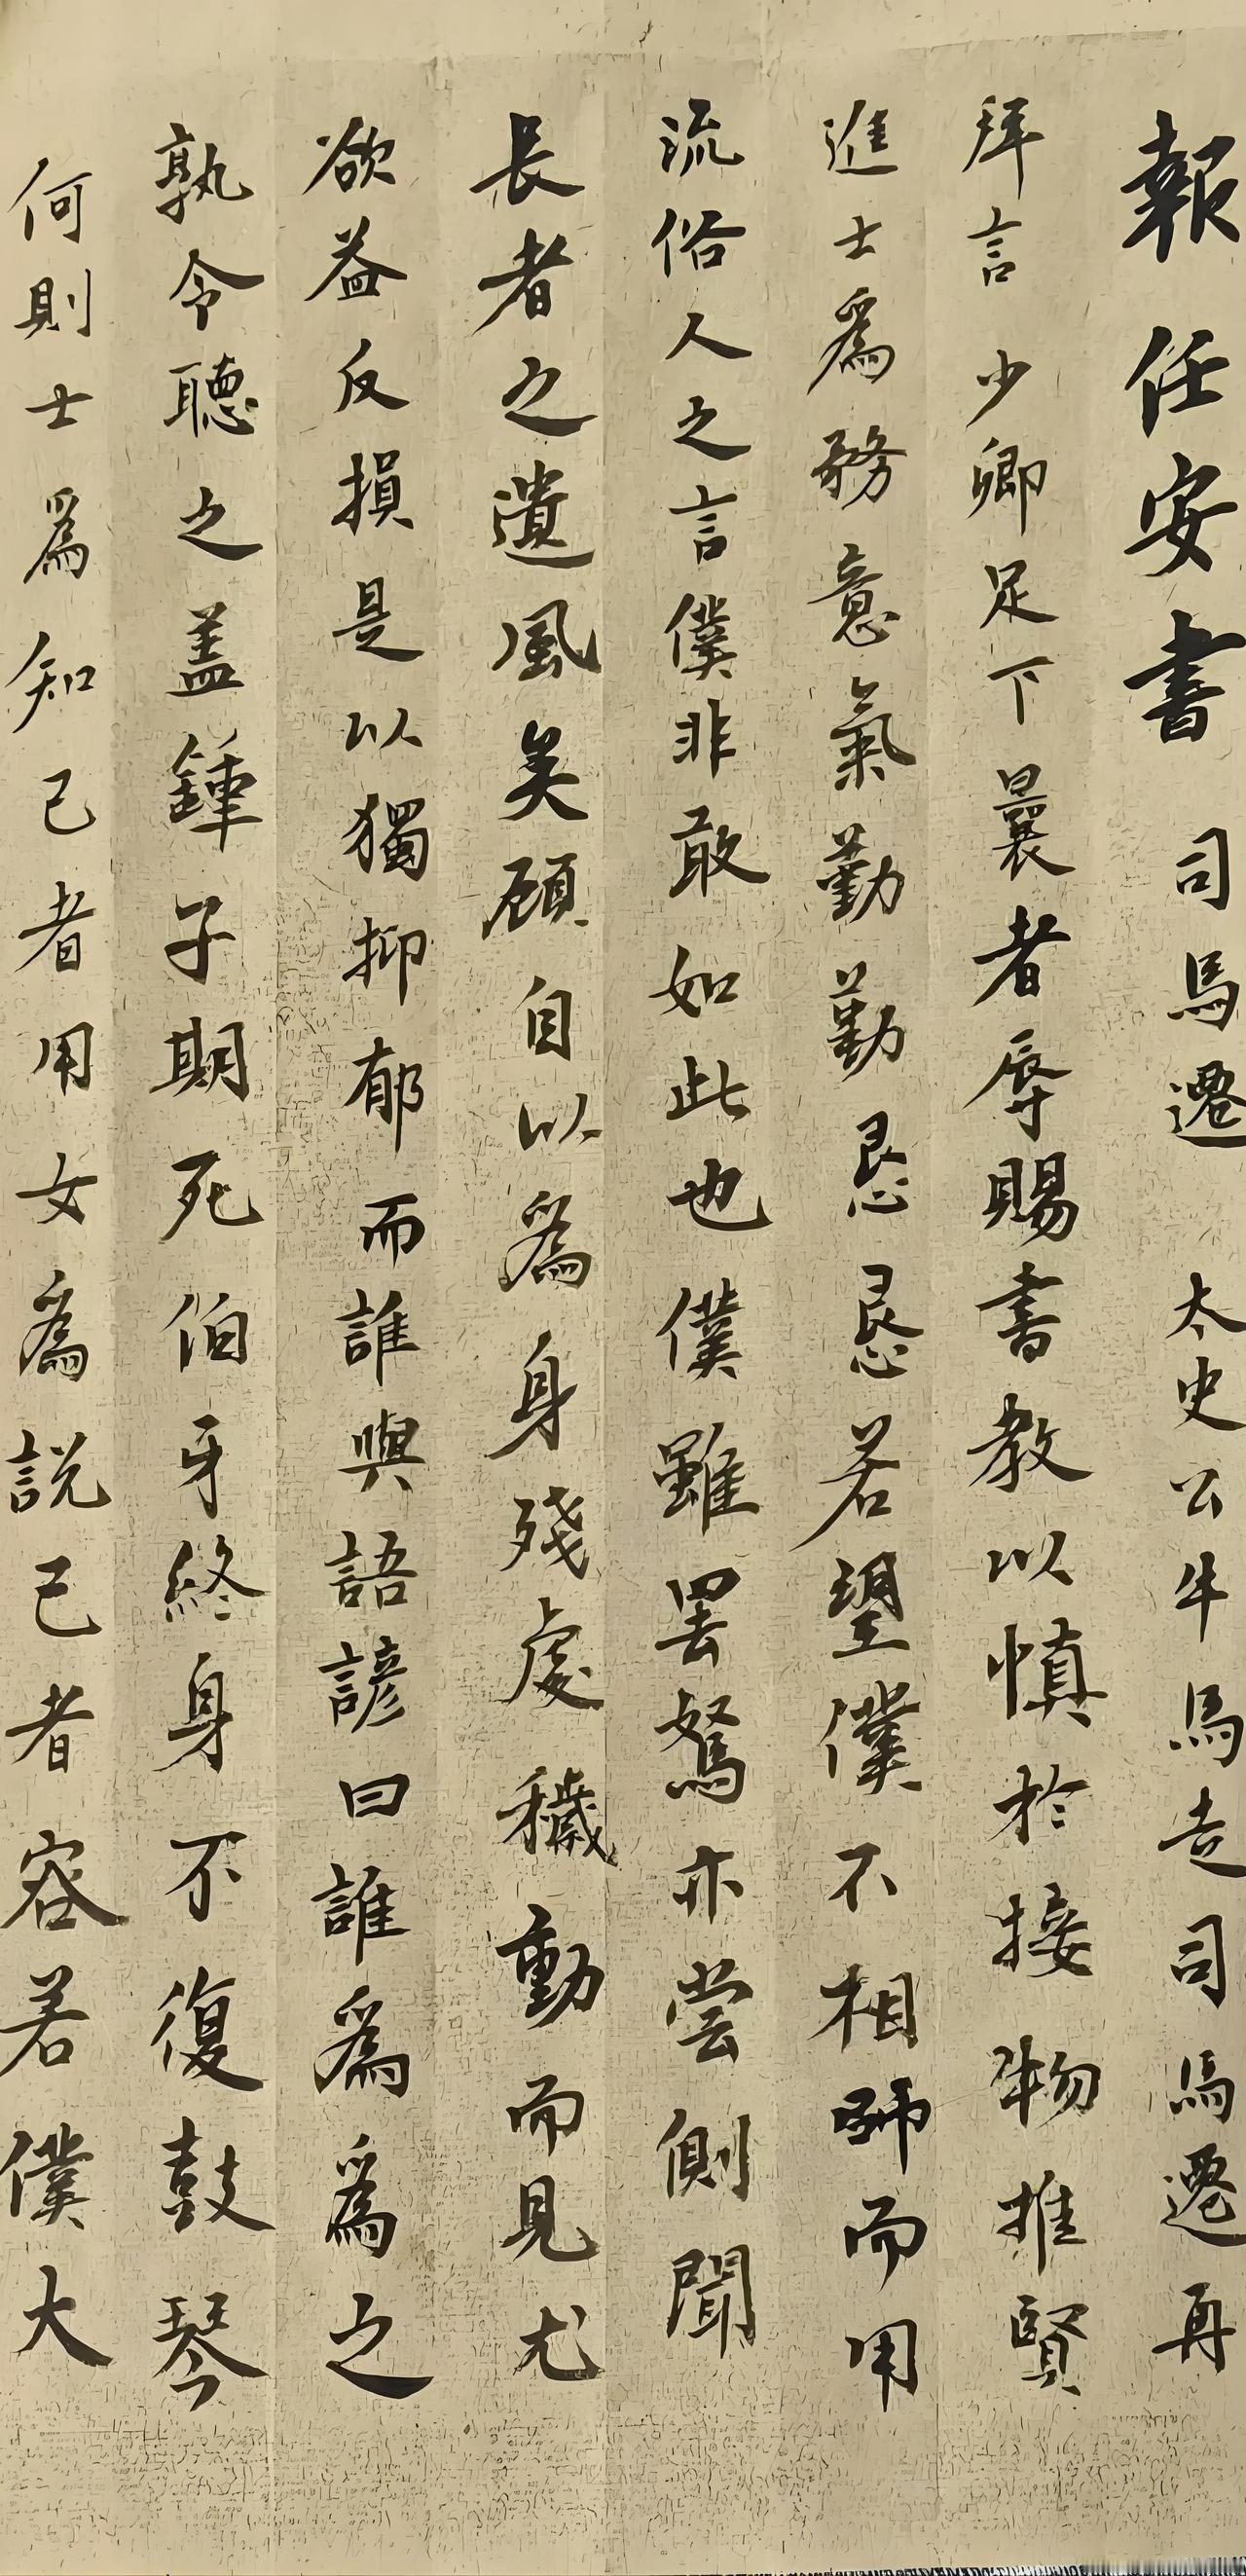 報任安書 司馬遷 太史公牛馬走司馬遷再
拜言少卿足下曩者辱賜書教以慎於接物推賢
進士爲務意氣勤勤恳恳若望僕不相師而用
流俗人之言僕非敢如此也僕雖罢駑亦尝側聞
長者之遺風矣顧自以爲身殘處穢動而見尤
欲益反損是以獨抑郁而誰與語諺曰誰爲爲之
孰令聽之盖鍾子期死伯牙終身不復鼓琴
何則士爲知己者用女爲説己者容若僕大